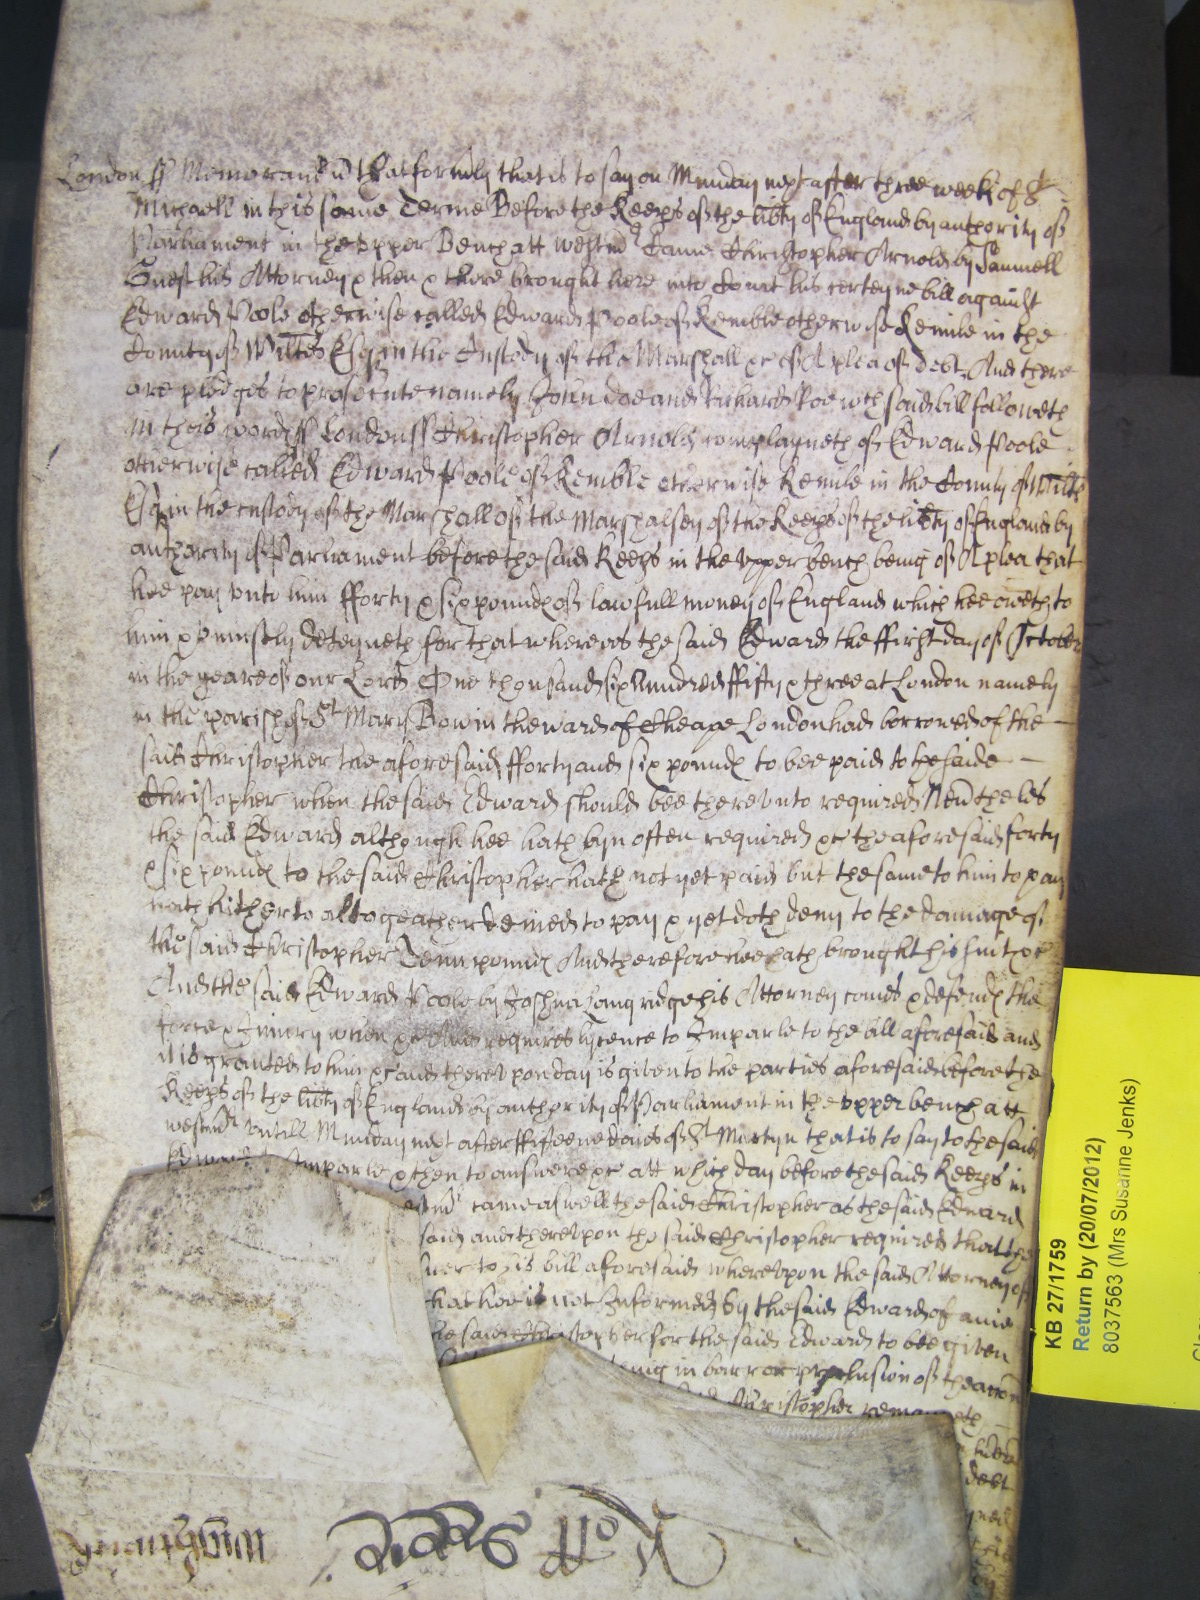 London ss Memorand that formerly that is to say on Munday next after three weeks of St
Michaell in this same Terme Before the Keeps of the libty of England by authority of
Parliament in the Upper Bench att Westmr Came Christopher Arnold by Samuell
Guest his Attorney & then & there brought here into Court his certeyne bill against
Edward Poole otherwise called Edward Poole of Kemble otherwise Kemile in the
County of Wiltes Esq in the Custody of the Marshall &c of A plea of debt And there
are pledges to prosecute namely John doe and Richard Roe wch said bill followeth
in theis words ss London ss Christopher Arnold complayneth of Edward Poole
otherwise called Edward Poole of Kemble otherwise Kemile in the County of Wiltes
Esq in the custody of the Marshall of the Marshalsey of the Keeps of the libty of England by
authority of Parliament before the said Keeps in the Upper bench being of A plea that
hee pay unto him fforty & six pounds of lawfull money of England which hee oweth to
him & uniustly deteyneth for that whereas the said Edward the ffirst day of October
in the yeare of our Lord One thousand six hundred ffifty & three at London namely
in the parish of St Mary Bow in the ward of Cheape London had borrowed of the
said Christopher the aforesaid fforty and six pounds to bee paid to the saide
Christopher when the said Edward should bee thereunto required Nevtheles
the said Edward although hee hath byn often required &c the aforesaid forty
& six pounds to the said Christopher hath not yet paid but the same to him to pay
hath hitherto altogeather denied to pay & yet doth deny to the damage of
the said Christopher Tenn pounds And therefore hee hath brought his suit &c
And the said Edward Poole by Joshua Langridge his Attorney comes & defends the
force & Iniury when &c And requires lycence to Imparle to the bill aforesaid and
it is granted to him &c and thereupon day is given to the parties aforesaid before the
Keeps of the libty of England by authority of Parliament in the upper bench att
Westmr untill Munday next after ffifteene daies of St Martyn that is to say to the said
Edward to Imparle & then to answere &c att which day before the said Keeps in
came aswell the said Christopher as the said Edward
said and thereupon the said Christopher required that the
to his bill aforesaid whereupon the said Attorney of
that hee is not Informed by the said Edward of anie
the said Christopher for the said Edward to bee given
in barr or preclusion of the accon
Christopher remayneth
debt
Wightwick
Roll
KB 27/1759
Return by (20/07/2012)
8037563 (Mrs Susanne Jenks)